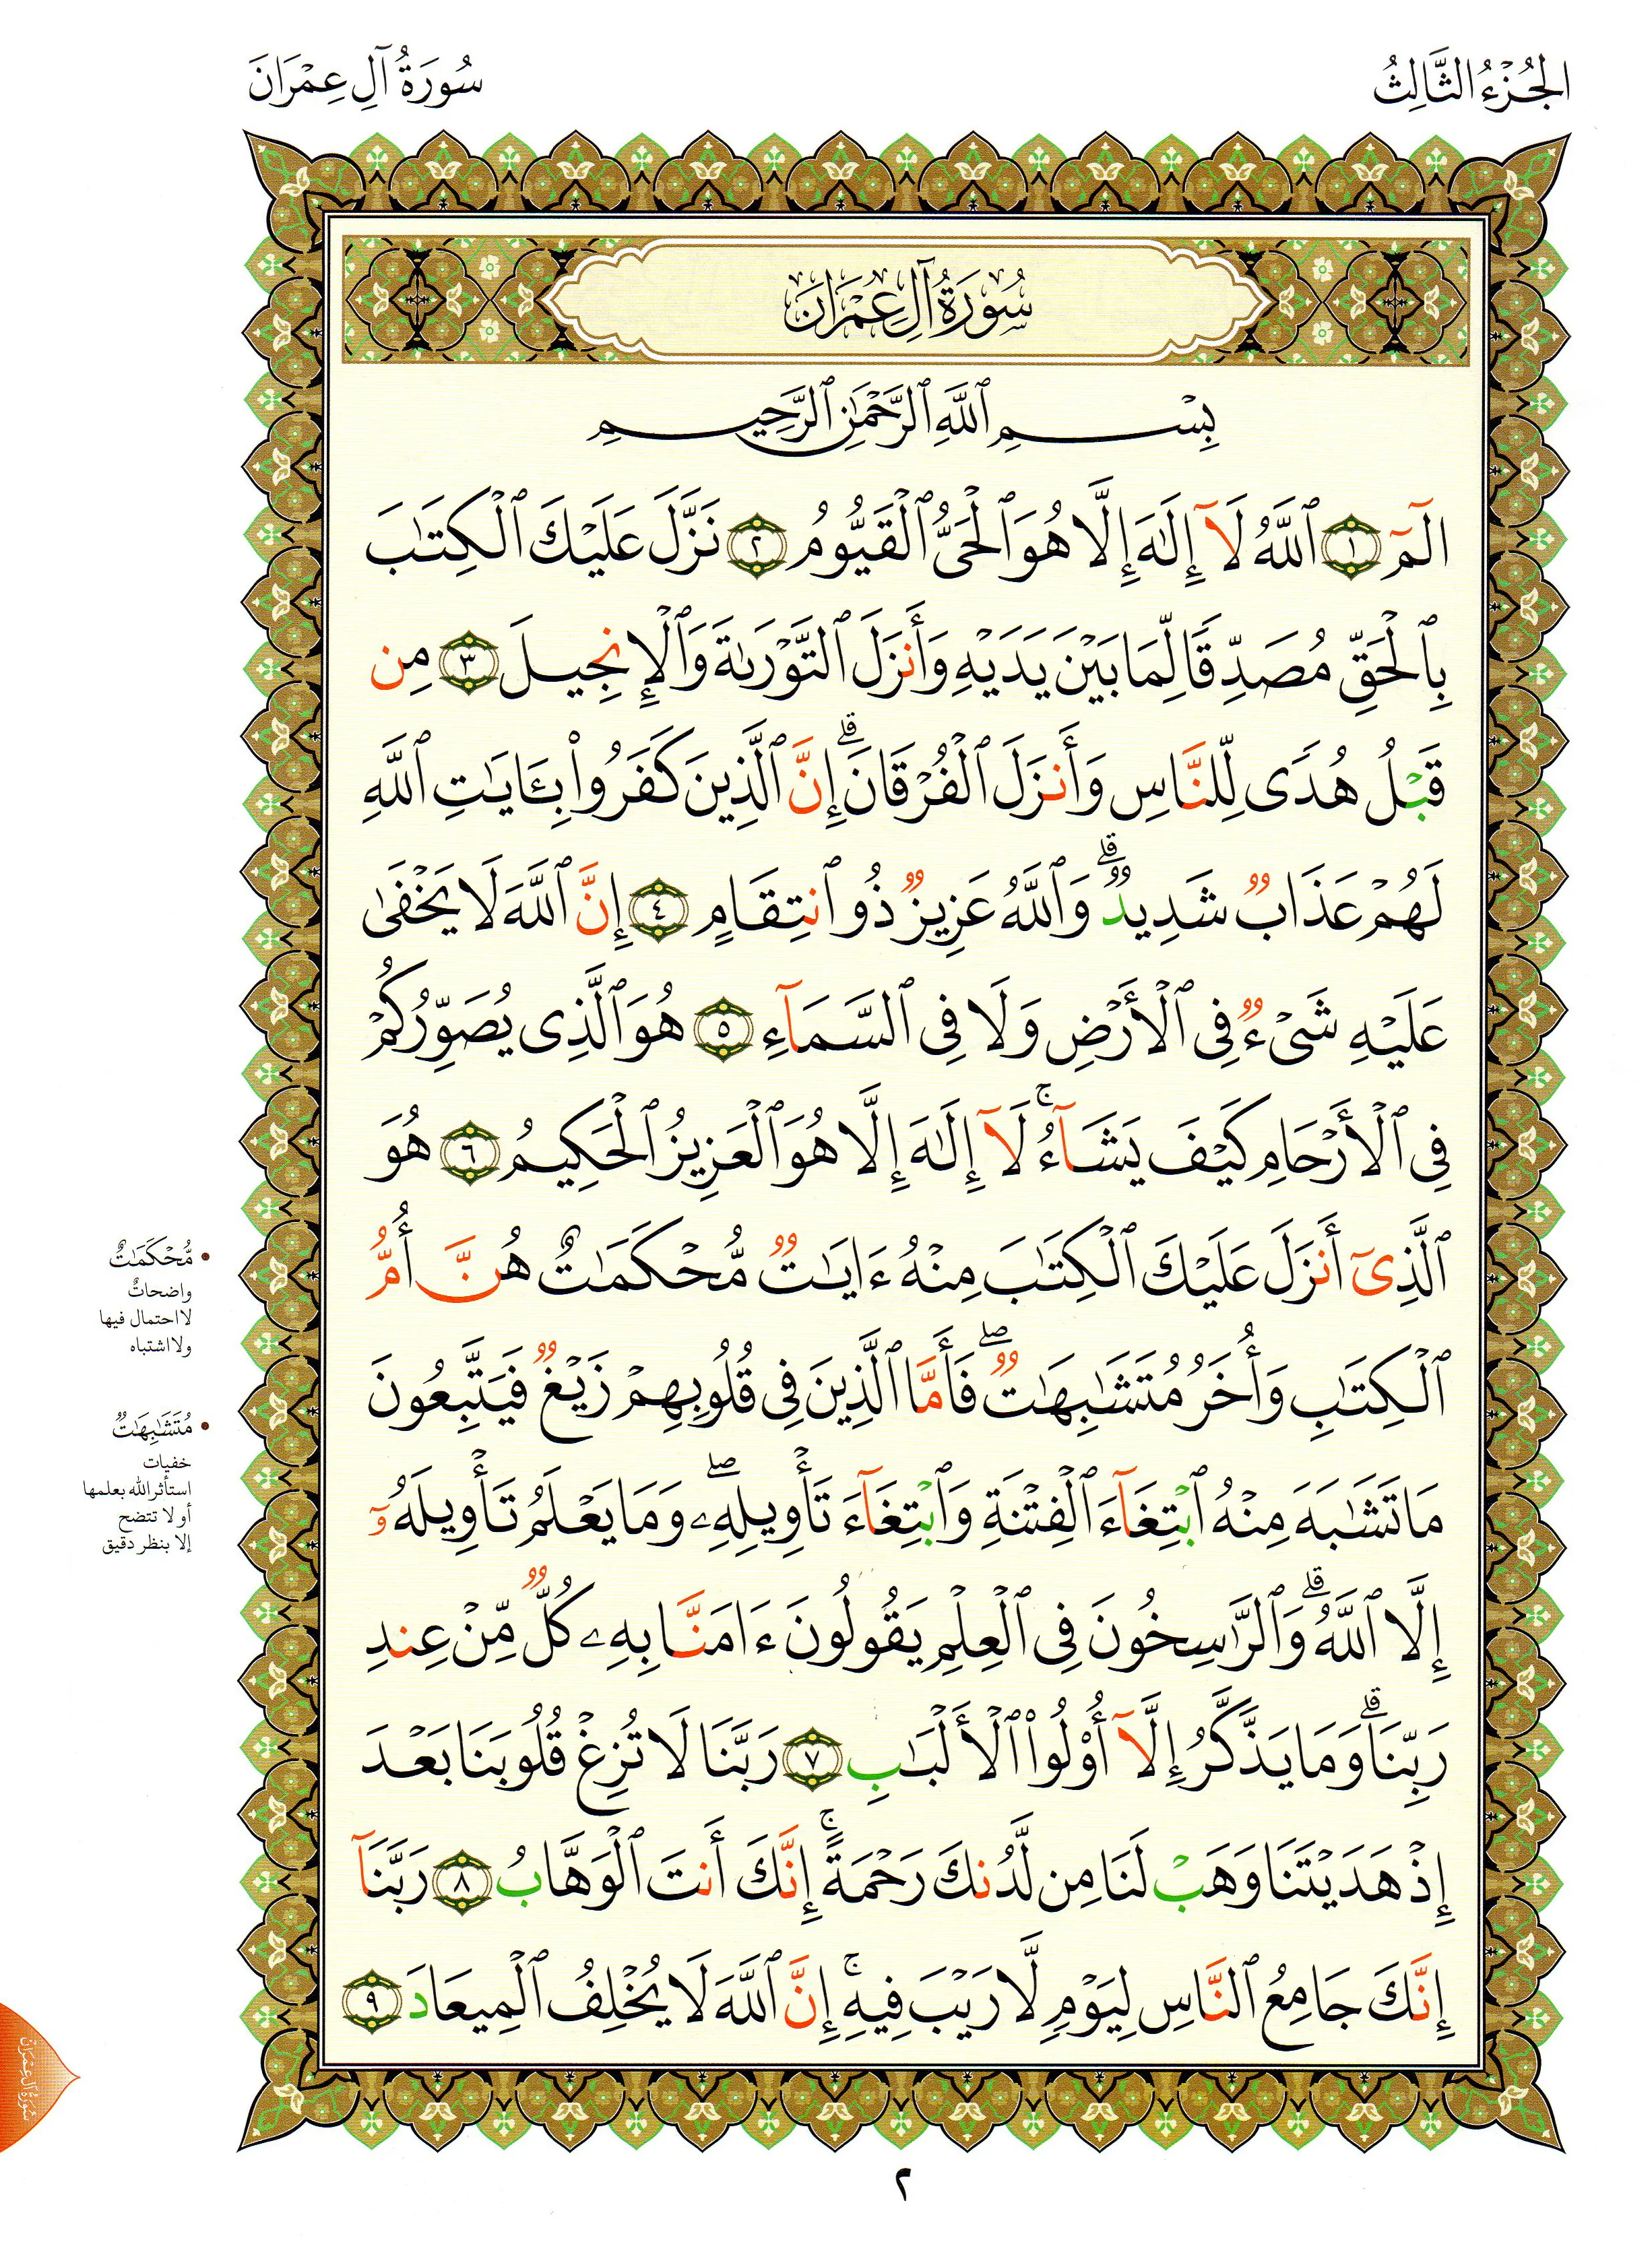 الجُزْءُ الثَّالِثُ
سُورَةُ آلِ عِمْرَانَ
سُورَةُ آلِ عِمْرَانَ
بِسْمِ ٱللَّهِ ٱلرَّحْمَٰنِ ٱلرَّحِيمِ
الٓمٓ ١ ٱللَّهُ لَآ إِلَٰهَ إِلَّا هُوَ ٱلْحَىُّ ٱلْقَيُّومُ ٢ نَزَّلَ عَلَيْكَ ٱلْكِتَٰبَ
بِٱلْحَقِّ مُصَدِّقًا لِّمَا بَيْنَ يَدَيْهِ وَأَنزَلَ ٱلتَّوْرَىٰةَ وَٱلْإِنجِيلَ ٣ مِن
قَبْلُ هُدًى لِّلنَّاسِ وَأَنزَلَ ٱلْفُرْقَانَ ۗ إِنَّ ٱلَّذِينَ كَفَرُوا۟ بِـَٔايَٰتِ ٱللَّهِ
لَهُمْ عَذَابٌ شَدِيدٌ ۗ وَٱللَّهُ عَزِيزٌ ذُو ٱنتِقَامٍ ٤ إِنَّ ٱللَّهَ لَا يَخْفَىٰ
عَلَيْهِ شَىْءٌ فِى ٱلْأَرْضِ وَلَا فِى ٱلسَّمَآءِ ٥ هُوَ ٱلَّذِى يُصَوِّرُكُمْ
فِى ٱلْأَرْحَامِ كَيْفَ يَشَآءُ ۚ لَآ إِلَٰهَ إِلَّا هُوَ ٱلْعَزِيزُ ٱلْحَكِيمُ ٦ هُوَ
ٱلَّذِىٓ أَنزَلَ عَلَيْكَ ٱلْكِتَٰبَ مِنْهُ ءَايَٰتٌ مُّحْكَمَٰتٌ هُنَّ أُمُّ
ٱلْكِتَٰبِ وَأُخَرُ مُتَشَٰبِهَٰتٌ ۖ فَأَمَّا ٱلَّذِينَ فِى قُلُوبِهِمْ زَيْغٌ فَيَتَّبِعُونَ
مَا تَشَٰبَهَ مِنْهُ ٱبْتِغَآءَ ٱلْفِتْنَةِ وَٱبْتِغَآءَ تَأْوِيلِهِۦ ۖ وَمَا يَعْلَمُ تَأْوِيلَهُۥٓ
إِلَّا ٱللَّهُ ۗ وَٱلرَّٰسِخُونَ فِى ٱلْعِلْمِ يَقُولُونَ ءَامَنَّا بِهِۦ كُلٌّ مِّنْ عِندِ
رَبِّنَا ۗ وَمَا يَذَّكَّرُ إِلَّآ أُو۟لُوا۟ ٱلْأَلْبَٰبِ ٧ رَبَّنَا لَا تُزِغْ قُلُوبَنَا بَعْدَ
إِذْ هَدَيْتَنَا وَهَبْ لَنَا مِن لَّدُنكَ رَحْمَةً ۚ إِنَّكَ أَنتَ ٱلْوَهَّابُ ٨ رَبَّنَآ
إِنَّكَ جَامِعُ ٱلنَّاسِ لِيَوْمٍ لَّا رَيْبَ فِيهِ ۚ إِنَّ ٱللَّهَ لَا يُخْلِفُ ٱلْمِيعَادَ ٩
• مُّحْكَمَٰتٌ
واضحاتٌ
لا احتمال فيها
ولا اشتباه
• مُتَشَٰبِهَٰتٌ
خفيات
استأثر الله بعلمها
أو لا تتضح
إلا بنظر دقيق
سُورَةُ آلِ عِمْرَانَ
٢